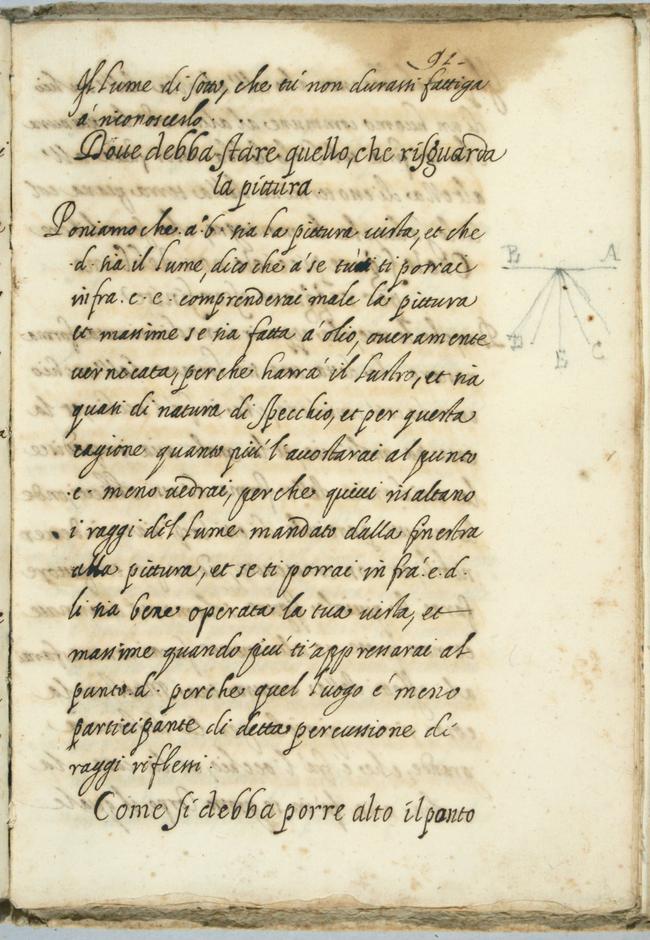 91
Il lume di sotto, che tu' non durassi fattiga
a' riconoscerlo.
Doue debba stare quello, che risguarda
la pittura.
Poniamo che .a.b. sia la pittura uista, et che
.d. sia il lume, dico che a' se tu ti porrai
infra .c. e. comprenderai male la pittura
et massime se sia fatta a' olio, oueramente
uernicata, perche harra' il lustro, et sia
quasi di natura di specchio, et per questa
cagione quanto piu' l'accostarai al punto
.c. meno uedrai, perche quiui risaltano
i raggi dil lume mandato dalla finestra
alla pittura, et se ti porrai infra' .e.d.
li sia bene operata la tua uista, et
massime quando piu' ti appressarai al
punto .d. perche quel luogo e' meno
participante di detta percussione di
raggi riflessi.
Come si debba porre alto il punto
B A
D E C